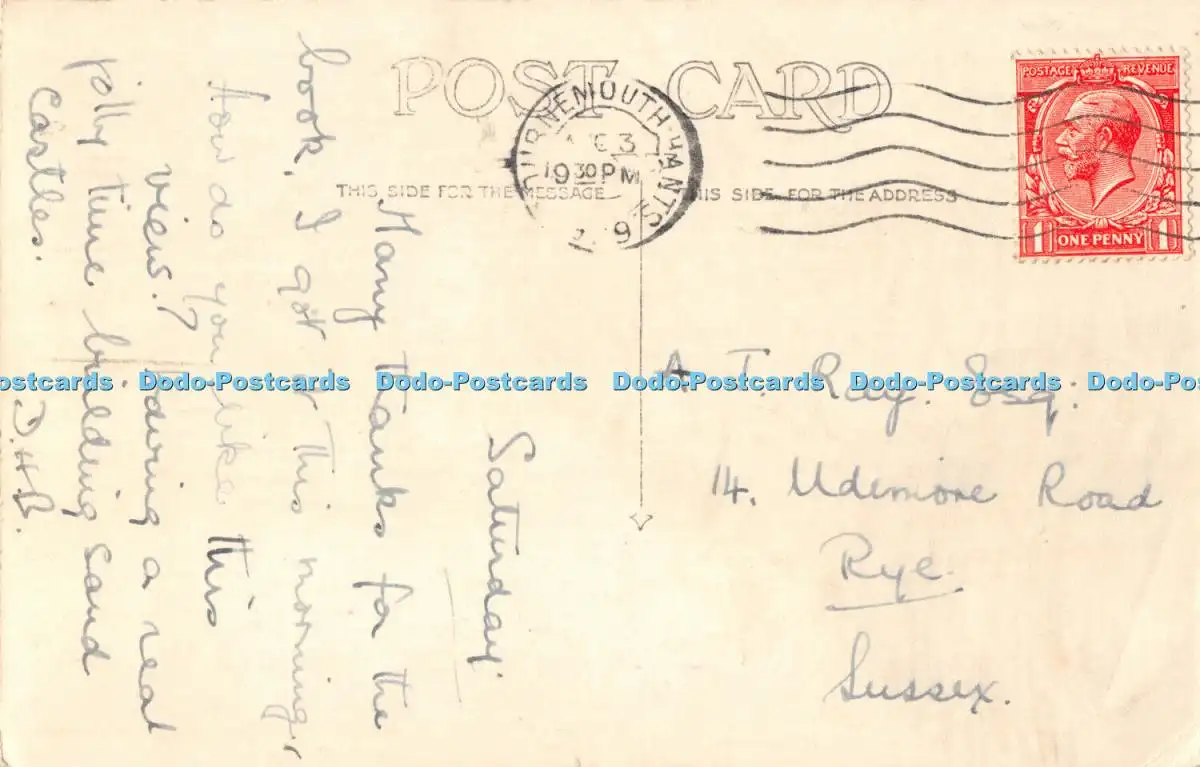 POST CARD
THIS SIDE FOR THE MESSAGE
THIS SIDE FOR THE ADDRESS
BOURNEMOUTH-HANTS
9 30 PM
POSTAGE REVENUE
1 ONE PENNY 1
Saturday.
Many thanks for the
book, I got it this morning,
How do you like this
view? Having a real
jolly time building sand
castles.
D.H.B.
A T. Ray. Esq.
14. Udimore Road
Rye.
Sussex.
Dodo-Postcards Dodo-Postcards Dodo-Postcards Dodo-Postcards Dodo-Postcards